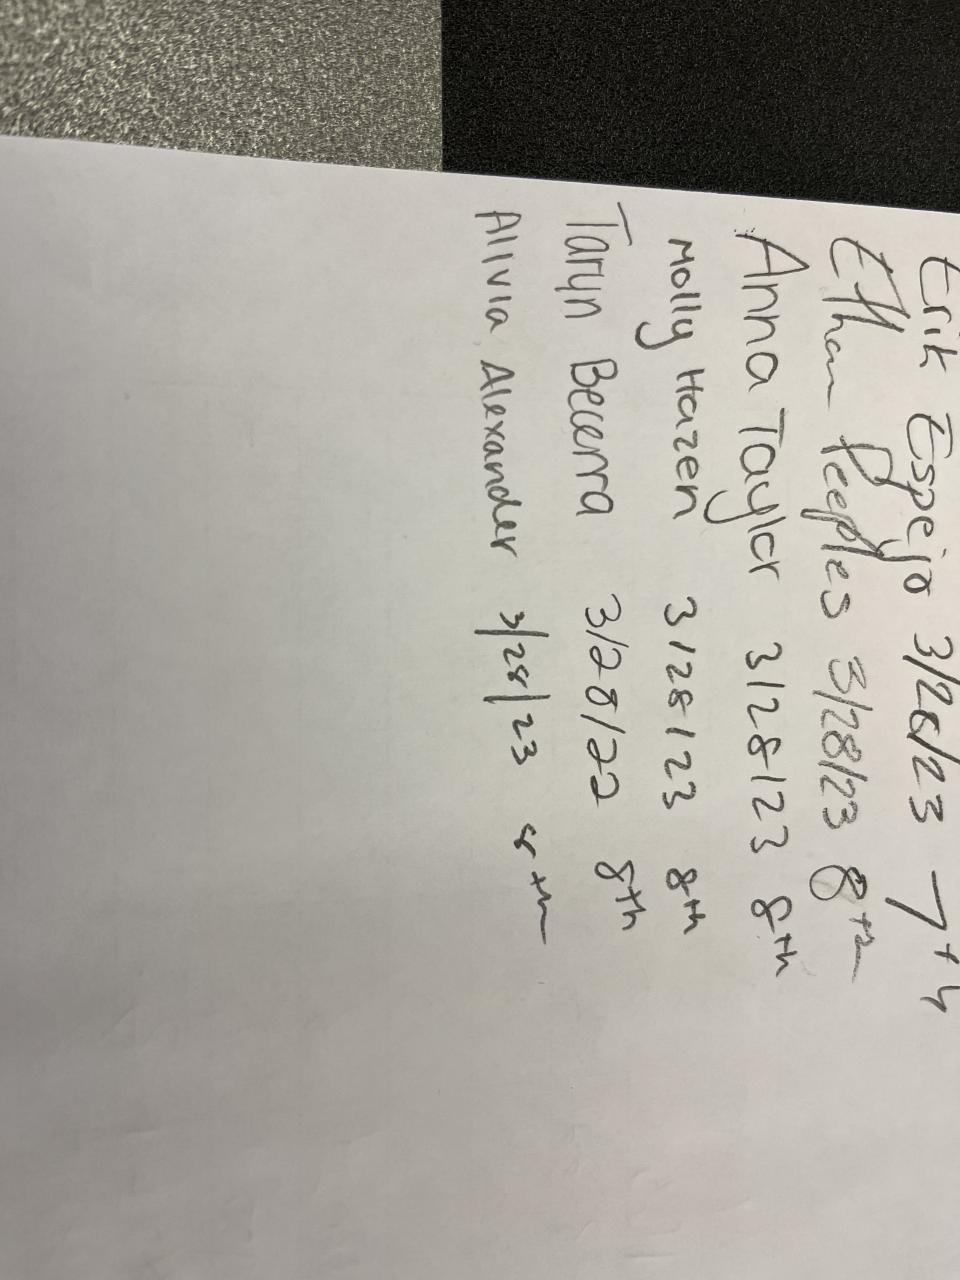 Erik Espejo 3/28/23 7th
Ethan Peeples 3/28/23 8th
Anna Taylor 3/28/23 8th
Molly Hazen 3/28/23 8th
Taryn Becerra 3/28/22 8th
Alivia Alexander 3/28/23 8th